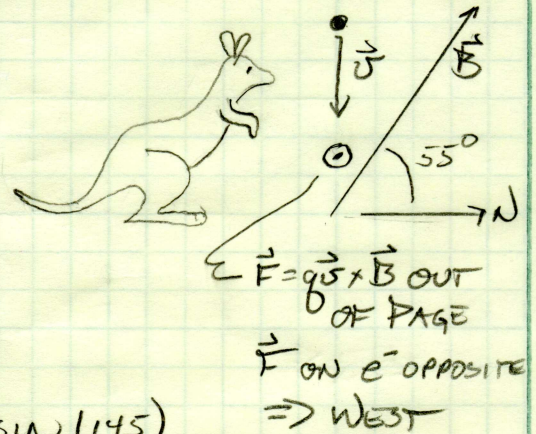 v⃗
B⃗
55°
N
F⃗ = qv⃗ × B⃗ OUT
OF PAGE
F⃗ ON e⁻ OPPOSITE
⇒ WEST
SIN(145)